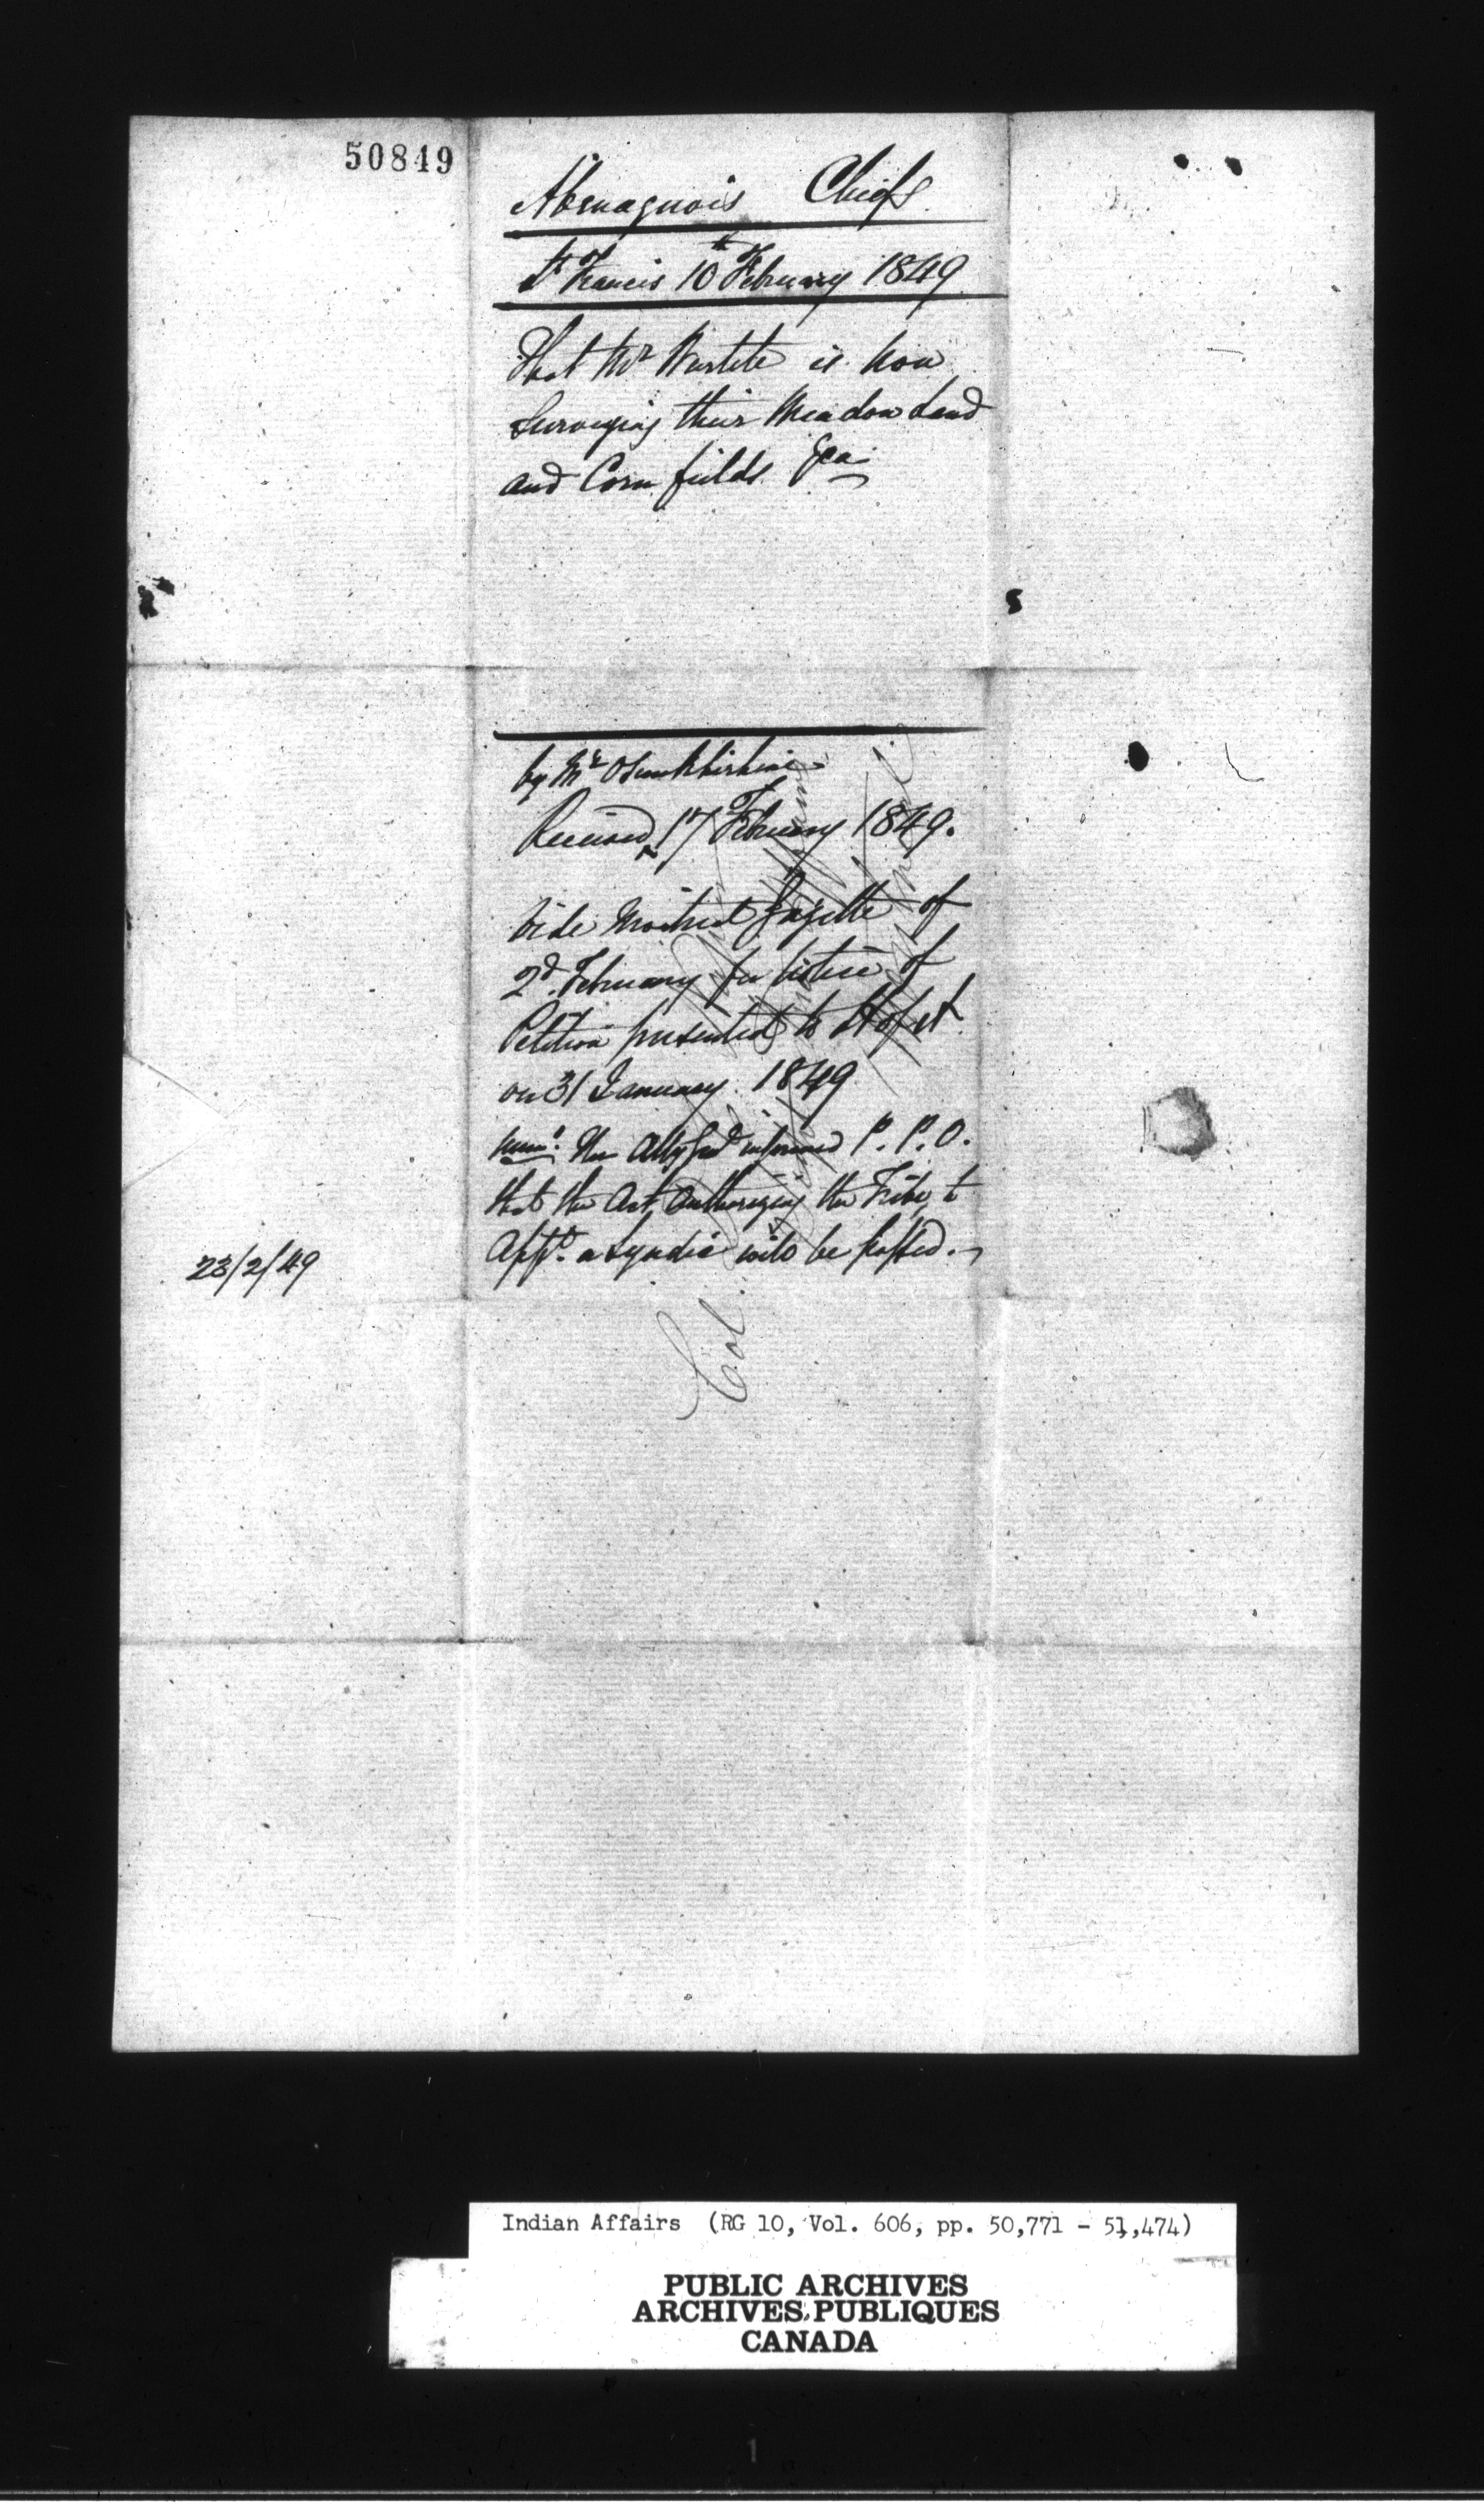 50849
Abenaquois Chiefs
St Francis 10th February 1849
That Mr Wurtele is now
Surveying their Meadow Land
and Corn fields &ca
by Mr Osunkhirhine
Received 17 February 1849.
Vide Montreal Gazette of
2d February for Notice of
Petition presented to H of A
on 31 January 1849
Memo: The Atty Genl informed P. P. O.
that the Act Authorizing the Tribe to
Appt. a Syndic will be passed.
23/2/49
Col.
Indian Affairs (RG 10, Vol. 606, pp. 50,771 - 51,474)
PUBLIC ARCHIVES
ARCHIVES PUBLIQUES
CANADA
1